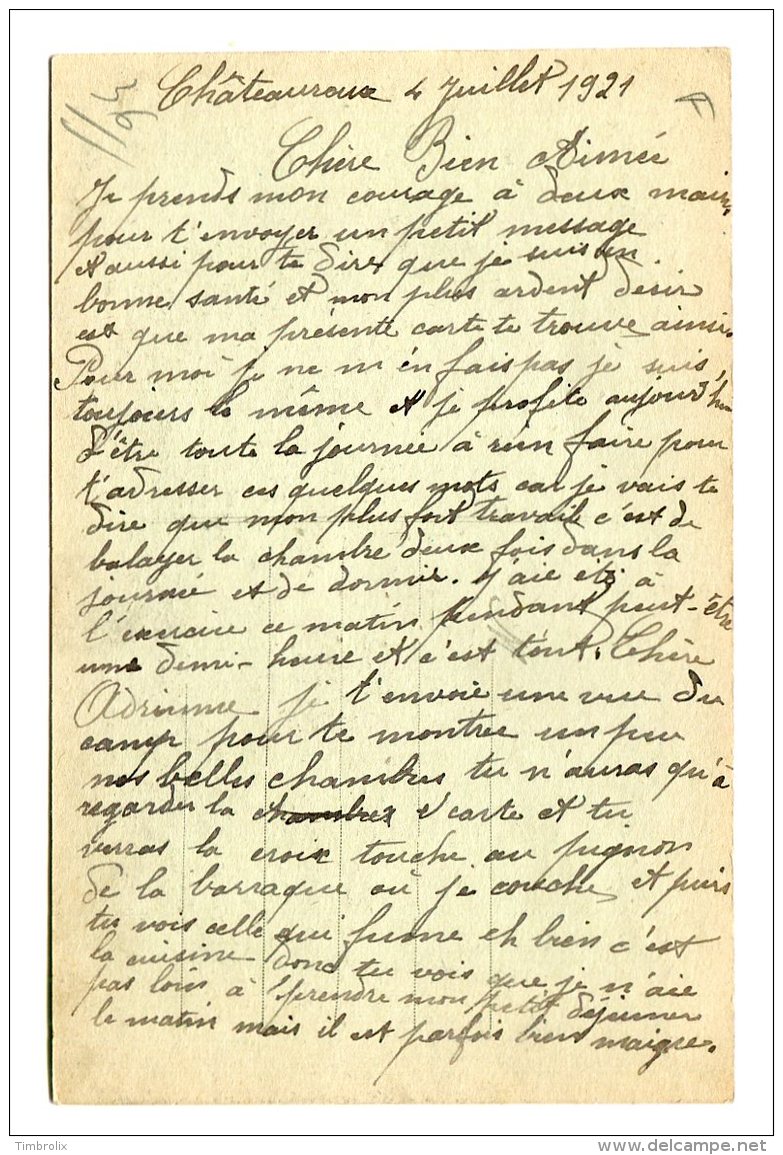 Châteauroux 4 Juillet 1921
Chère Bien Aimée
Je prends mon courage à deux mains
pour t'envoyer un petit message
et aussi pour te dire que je suis en
bonne santé et mon plus ardent désir
est que ma présente carte te trouve ainsi.
Pour moi je ne m'en fais pas je suis
toujours le même et je profite aujourd'hui
d'être toute la journée à rien faire pour
t'adresser ces quelques mots car je vais te
dire que mon plus fort travail c'est de
balayer la chambre deux fois dans la
journée et de dormir. j'aie été à
l'exercice ce matin pendant peut-être
une demi-heure et c'est tout. Chère
Adrienne je t'envoie une vue du
camp pour te montrer un peu
nos belles chambres tu n'auras qu'à
regarder la carte et tu
verras la croix touche au pignon
de la barraque où je couche et puis
tu vois celle qui fume eh bien c'est
la cuisine donc tu vois que je n'aie
pas loin à prendre mon petit déjeuner
le matin mais il est parfois bien maigre.
Timbrolix
delcampe.net